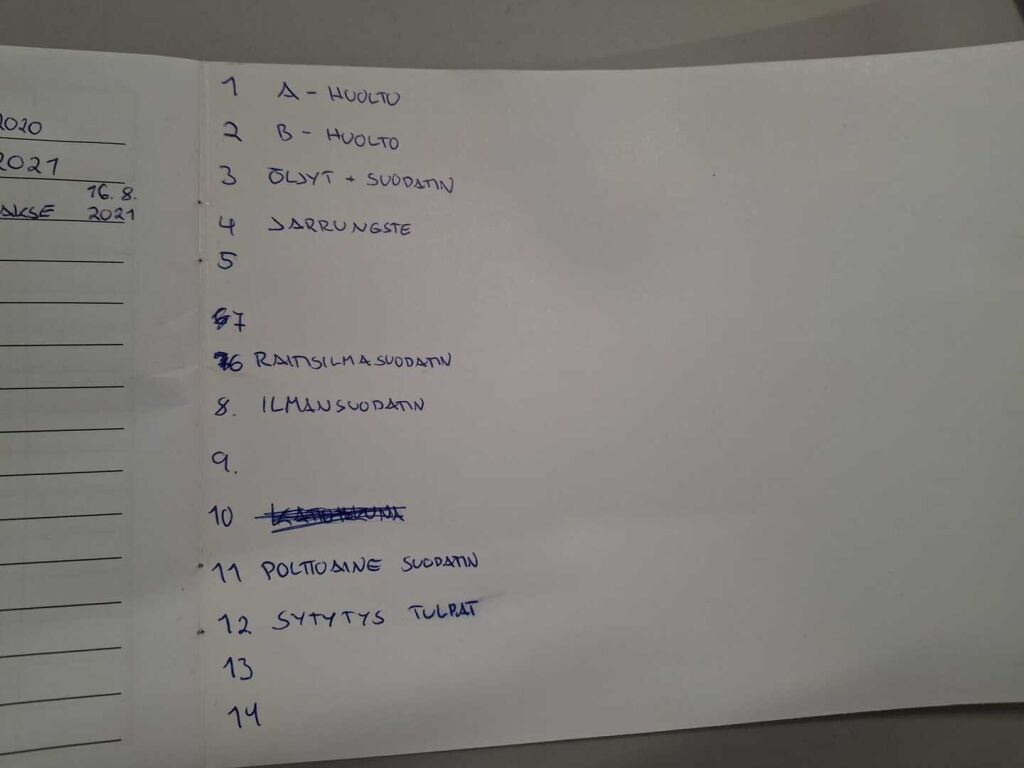 2020
2021
16.8.
AKSE 2021
1 A - HUOLTO
2 B - HUOLTO
3 ÖLJYT + SUODATIN
4 JARRUNESTE
5
7
6 RAITISILMASUODATIN
8. ILMANSUODATIN
9.
10
11 POLTTOAINE SUODATIN
12 SYTYTYS TULPAT
13
14